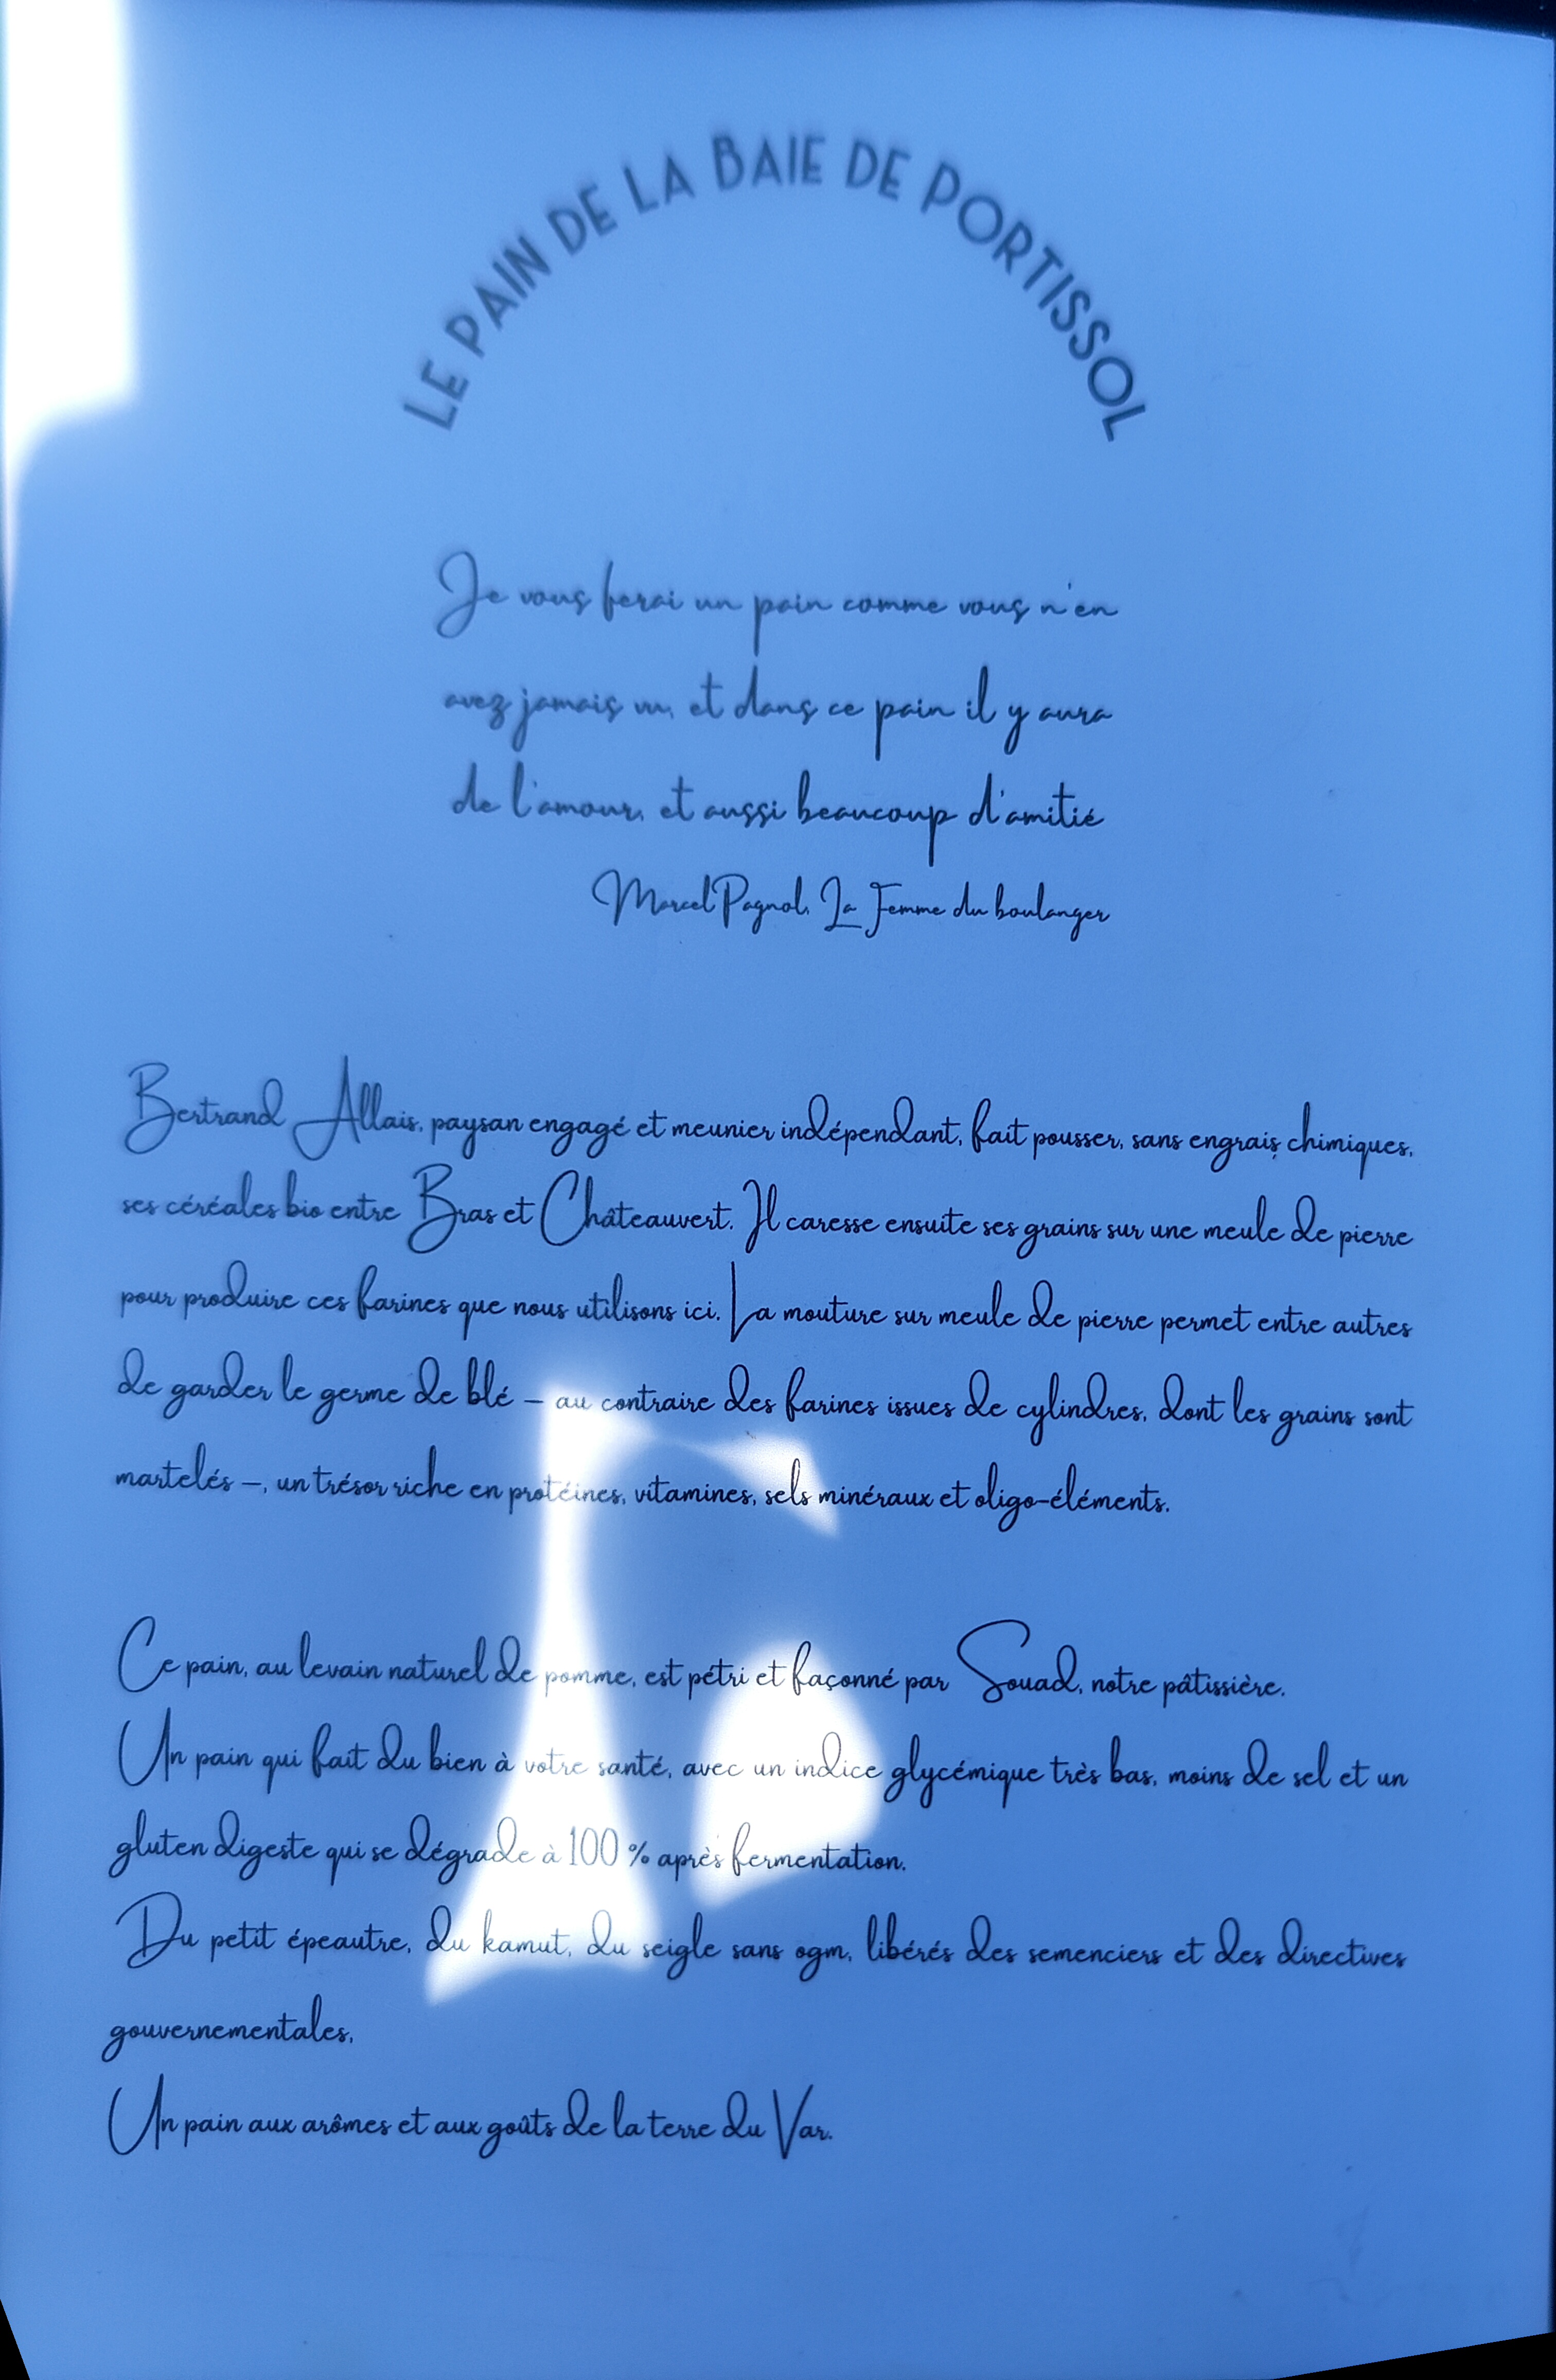 LE PAIN DE LA BAIE DE PORTISSOL
Je vous ferai un pain comme vous n'en
avez jamais vu, et dans ce pain il y aura
de l'amour, et aussi beaucoup d'amitié
Marcel Pagnol, La Femme du boulanger
Bertrand Allais, paysan engagé et meunier indépendant, fait pousser, sans engrais chimiques,
ses céréales bio entre Bras et Châteauvert. Il caresse ensuite ses grains sur une meule de pierre
pour produire ces farines que nous utilisons ici. La mouture sur meule de pierre permet entre autres
de garder le germe de blé – au contraire des farines issues de cylindres, dont les grains sont
martelés –, un trésor riche en protéines, vitamines, sels minéraux et oligo-éléments.
Ce pain, au levain naturel de pomme, est pétri et façonné par Souad, notre pâtissière.
Un pain qui fait du bien à votre santé, avec un indice glycémique très bas, moins de sel et un
gluten digeste qui se dégrade à 100 % après fermentation.
Du petit épeautre, du kamut, du seigle sans ogm, libérés des semenciers et des directives
gouvernementales,
Un pain aux arômes et aux goûts de la terre du Var.